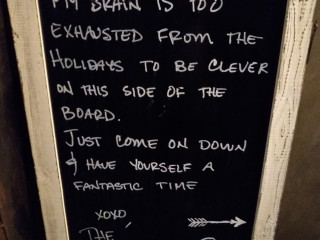 My Brain is too
exhausted from the
Holidays to be clever
on this side of the
Board.
Just come on down
& have yourself a
fantastic time
xoxo
The